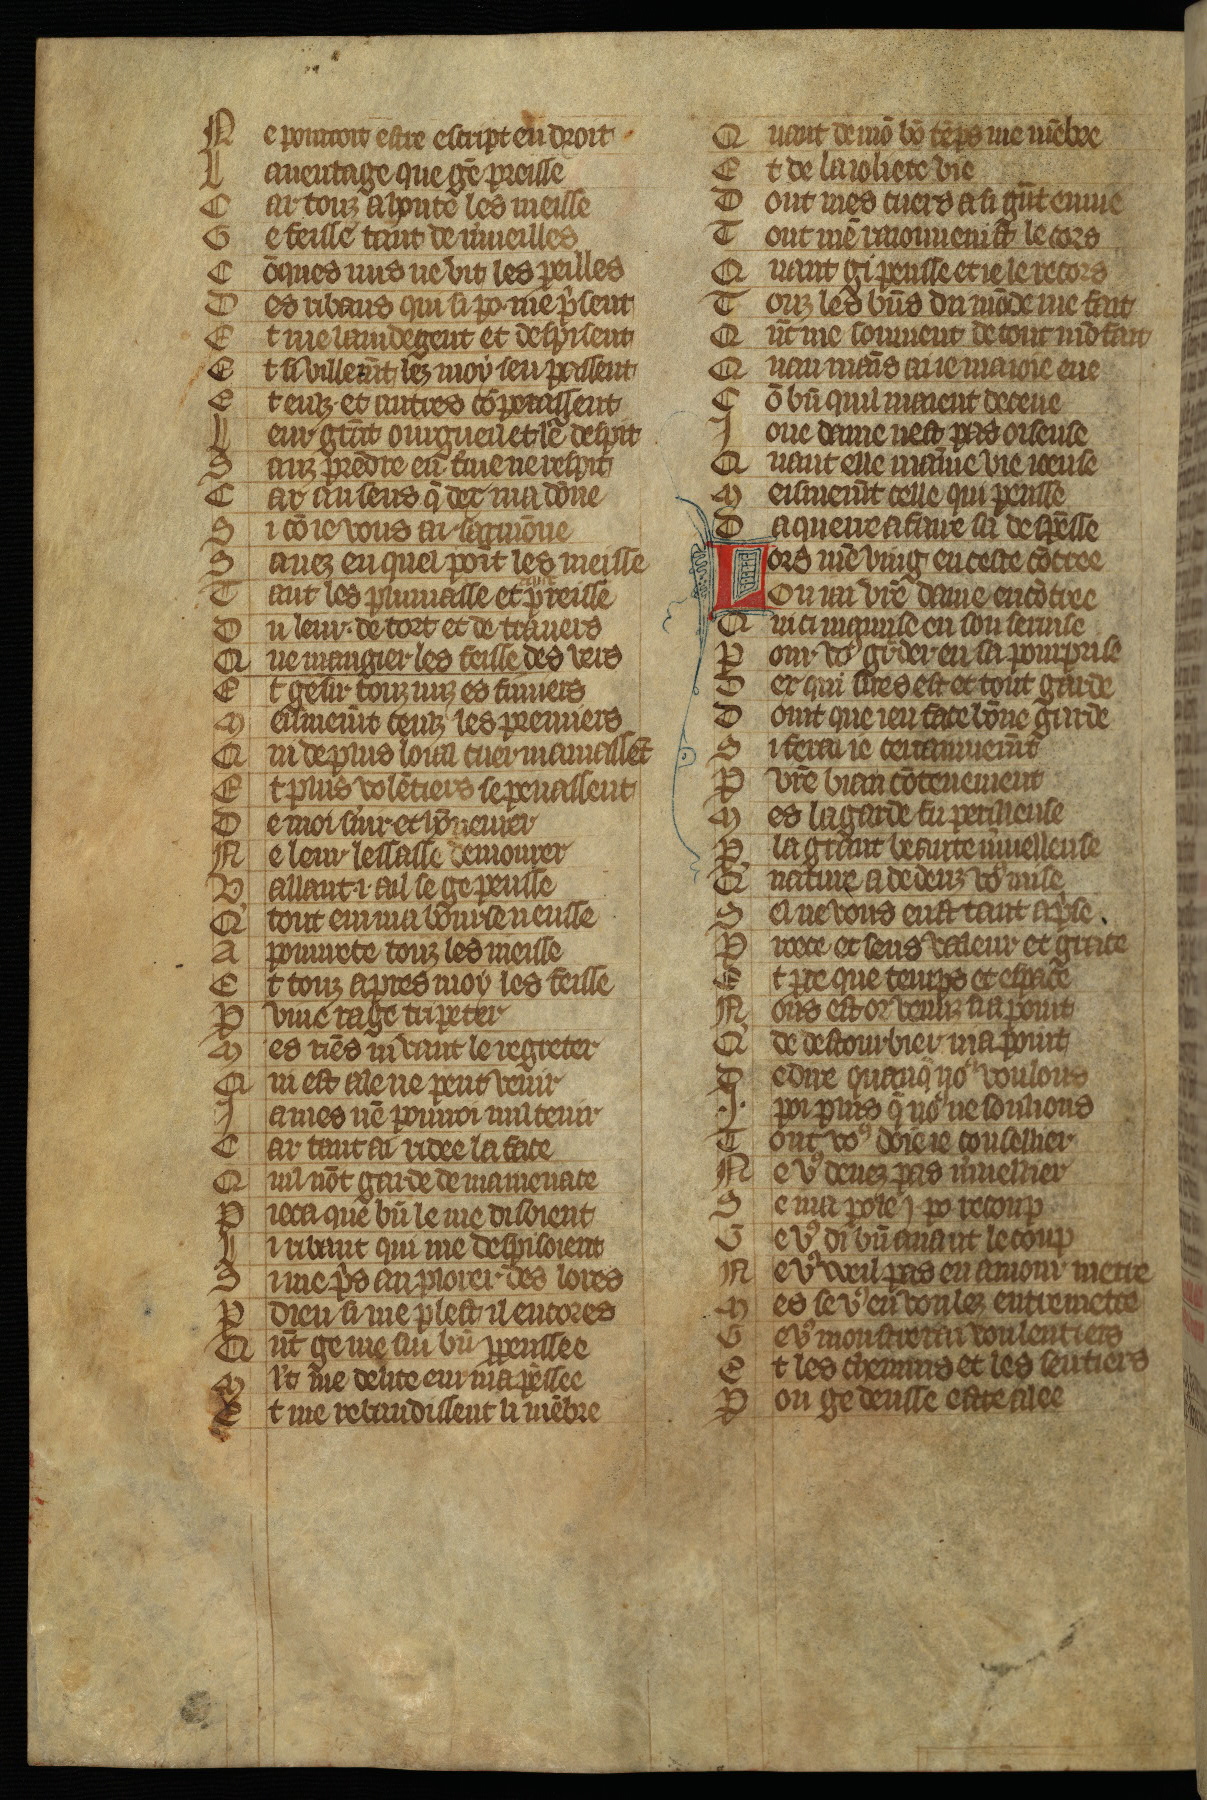 N e pourroit estre escript en droit
L auentage que gē preisse
C ar touz a honte les meisse
G e feisse tant de mueilles
C ōques mis ne vit les peilles
D es ribaus qui si po me psent
E t me laindegent et despisent
E t si vilment lez moy sen passent
E t eulz et autres cōperassent
L eur gt orgueil et le despit
S anz predre en faire ne respit
C ar au sens q̄ dex ma dōne
S i cō ie vous ai sarmōne
S auez en quel poīt les meisse
T ant les plumasse et preisse
D u leur de tort et de trauers
Q ue mangier les feisse des vers
E t gesir touz nuz es fumiers
M eismemt ceulz les premiers
Q ui de plus loial cuer mamassēt
E t plus volētiers se penassent
D e moi suir et hōneurer
N e leur lessasse demourer
V allant i ail se ge peusse
Q̄ tout en ma bourse neusse
A pourete touz les meusse
E t touz apres moy les feisse
P viue rage tripeter
M es riēs ni vaut le regreter
Q ui est ale ne peut venir
J ames nē pourroi nul tenir
C ar tant ai ridee la face
Q uil nōt garde de ma menace
P ieca que bn̄ le me disoient
L i ribaut qui me despisoient
S i me ps au plorer des lores
P dieu si me plest il encores
Q nt ge me sui bn̄ ppensee
M lt me delite en ma pēsee
E t me rebaudissent li mēbre
Q uant de mō bō tēps me mēbre
E t de la ioliete vie
D ont mes cuers a si gnt enuie
T out mē raiouuenist le cors
Q uant gi pensse et ie le recors
T ouz les bn̄s du mōde me fait
Q nt me souuient de tout mō fait
Q uau mains ai ie ma ioie eue
C ō bn̄ quil maient deceue
J oue dame nest pas oiseuse
Q uant elle maine vie ioeuse
M eismemt celle qui pensse
D aquerre a faire sa despēsse
L ors mē ving en ceste cōtree
Ou iai vrē dame encōtree
Q ui ci ma mise en son seruise
P our vo9 garder en sa pourprise
D ex qui sires est et tout garde
D oint que ien face bōne garde
S i ferai ie certainnemt
P vrē biau cōtenement
M es la garde fu perilleuse
P la grant beaute mueilleuse
Q̄ nature a dedenz vo9 mise
S el ne vous eust tant aprise
P roece et sens valeur et grace
E t pce que temps et espace
N ous est or venuz si a point
Q̄ de destourbier ni a point
D e dire quanq̄ no9 voulons
.J. poi plus q̄ no9 ne soulions
T out vo9 doie ie conseillier
N e v9 deuez pas mueillier
S e ma pole j po recoup
G e v9 di bn̄ auant le coup
N e v9 vueil pas en amour metre
M es se v9 en voulez entremetre
G e v9 moustrerai voulentiers
E t les chemins et les sentiers
P ou ge deusse estre alee